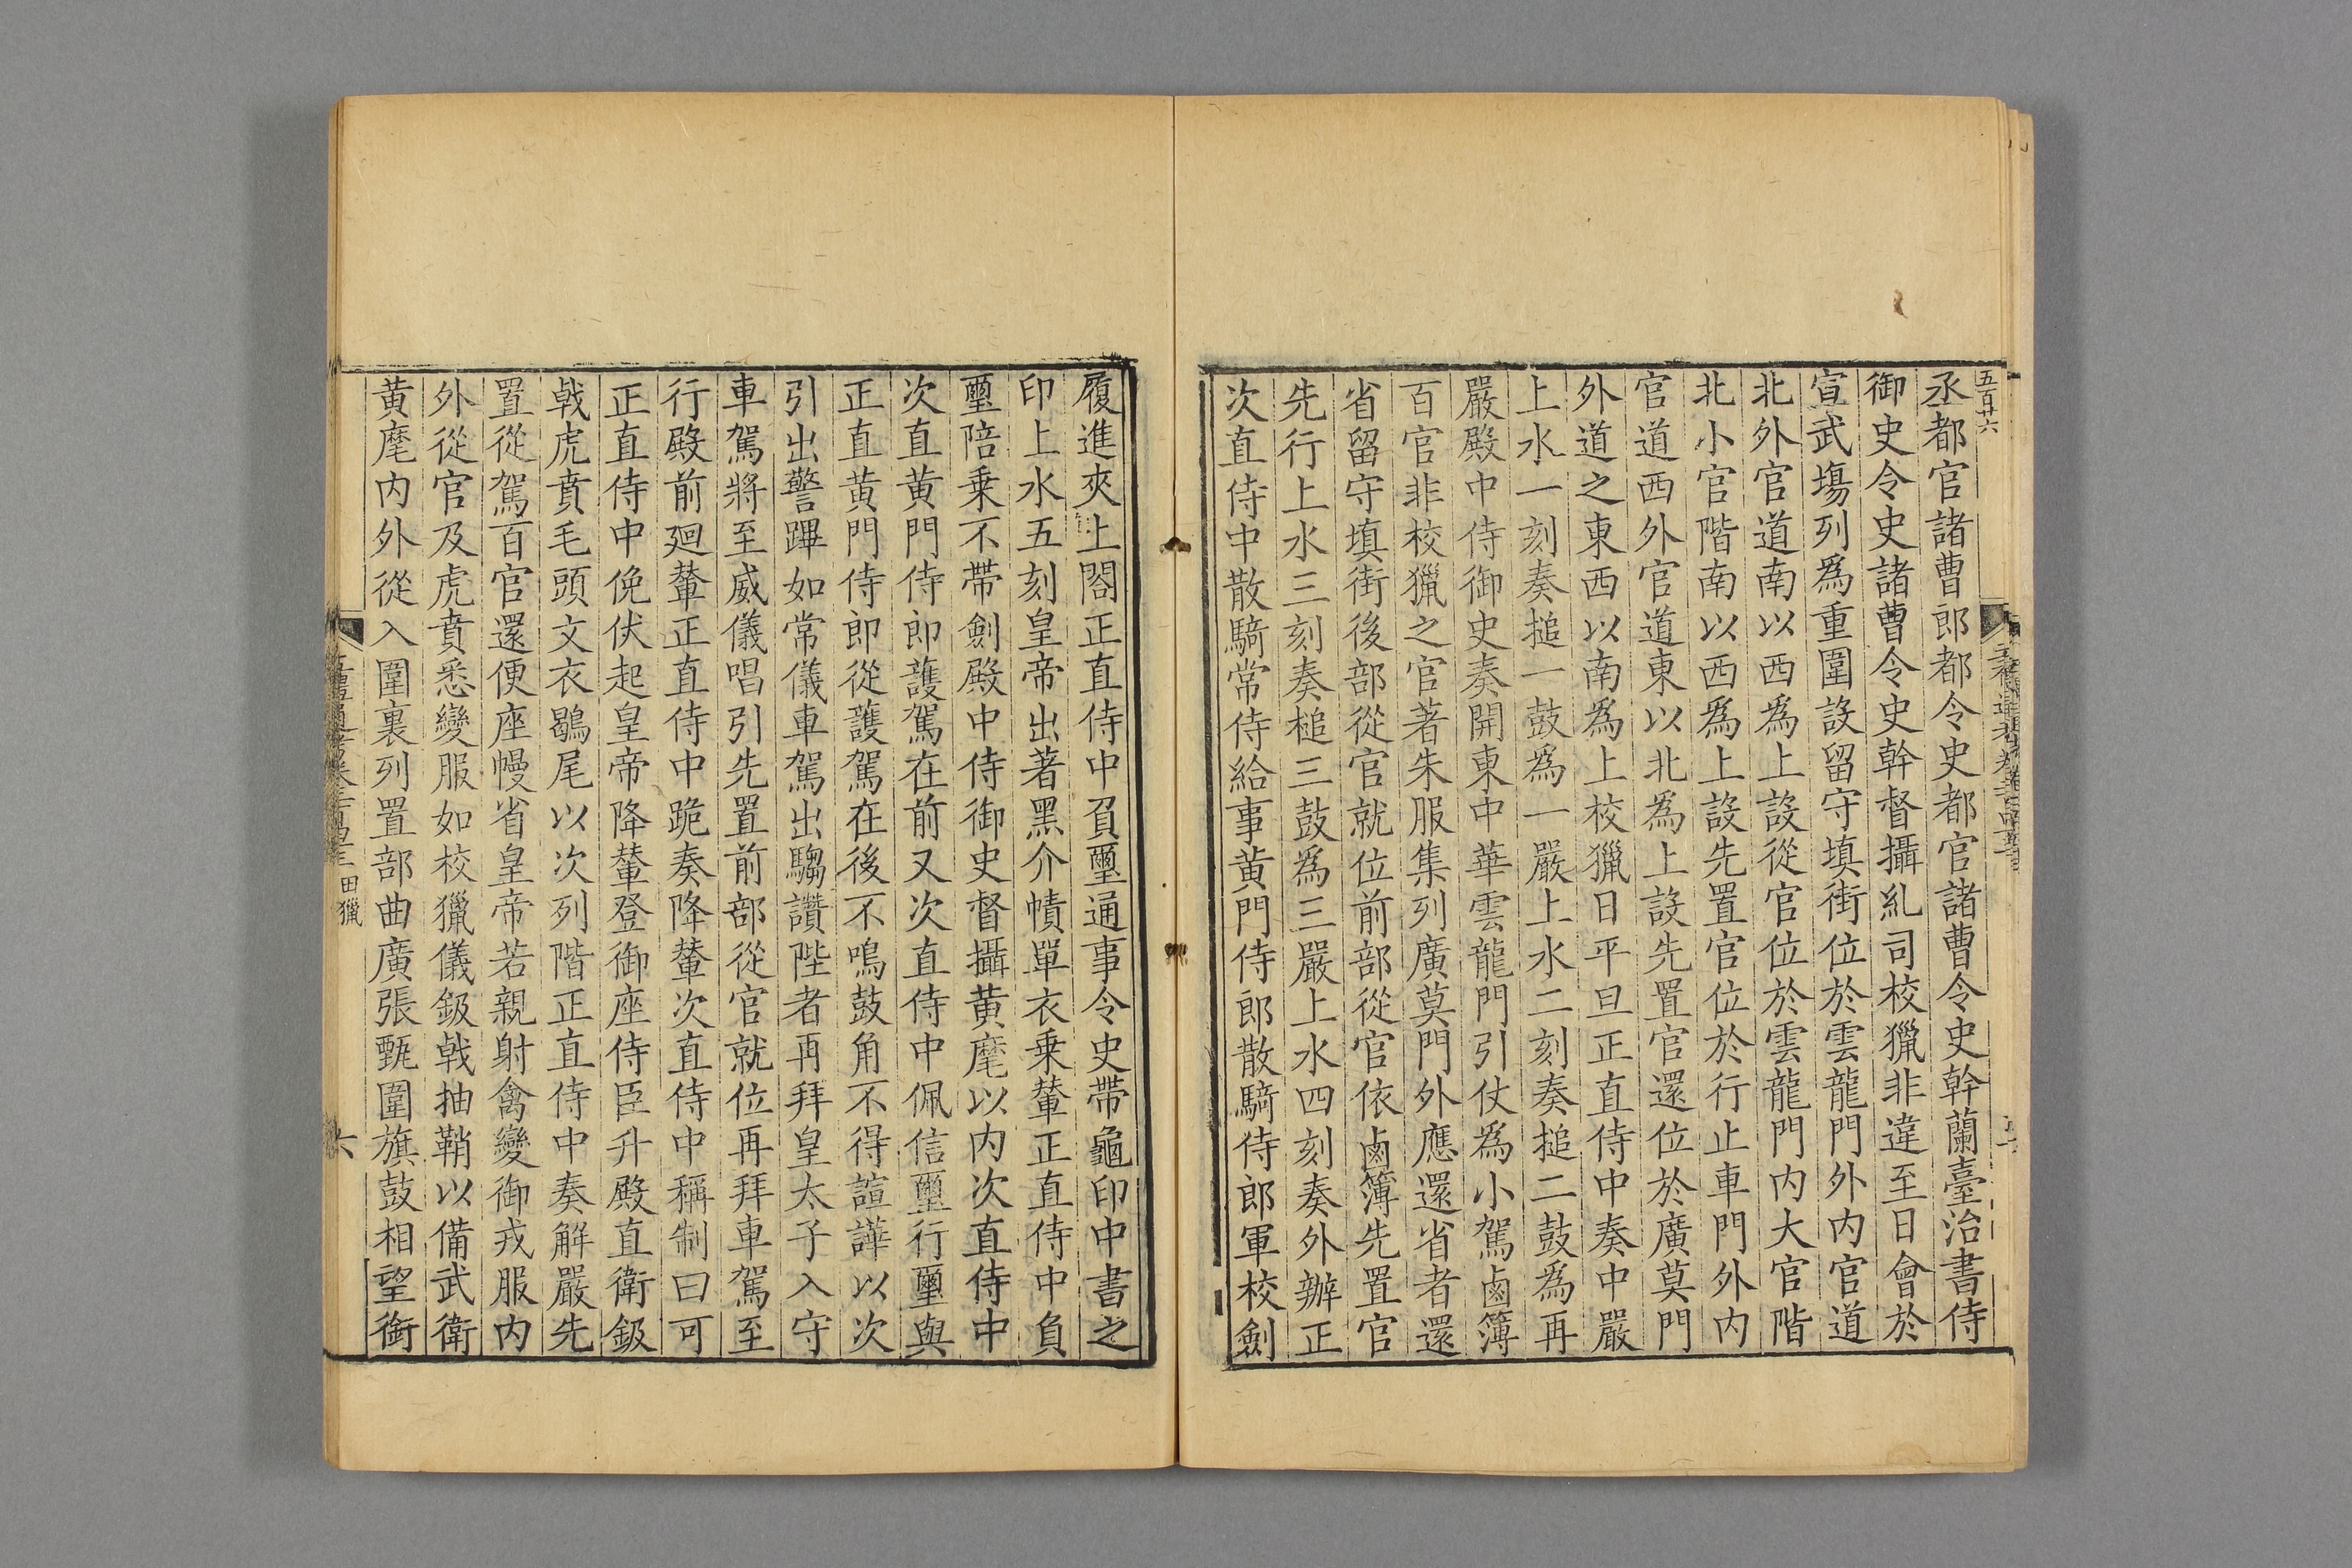 五百廿六
丞都官諸曹郎都令史都官諸曹令史幹蘭臺治書侍
御史令史諸曹令史幹督攝糺司校獵非違至日會於
宣武塲列爲重圍設留守填街位於雲龍門外内官道
北外官道南以西爲上設從官位於雲龍門内大官階
北小官階南以西爲上設先置官位於行止車門外内
官道西外官道東以北爲上設先置官還位於廣莫門
外道之東西以南爲上校獵日平旦正直侍中奏中嚴
上水一刻奏搥一鼓爲一嚴上水二刻奏搥二鼓爲再
嚴殿中侍御史奏開東中華雲龍門引仗爲小駕鹵簿
百官非校獵之官著朱服集列廣莫門外應還省者還
省留守填街後部從官就位前部從官依鹵簿先置官
先行上水三刻奏槌三鼓為三嚴上水四刻奏外辦正
次直侍中散騎常侍給事黄門侍郎散騎侍郎軍校劍
履進夾上閤正直侍中負璽通事令史帶龜印中書之
印上水五刻皇帝出著黑介幘單衣乗輦正直侍中負
璽陪乗不帶劍殿中侍御史督攝黄麾以内次直侍中
次直黄門侍郎護駕在前又次直侍中佩信璽行璽與
正直黄門侍郎從護駕在後不鳴鼓角不得諠譁以次
引出警蹕如常儀車駕出騶讚陛者再拜皇太子入守
車駕將至威儀唱引先置前部從官就位再拜車駕至
行殿前廻輦正直侍中跪奏降輦次直侍中稱制曰可
正直侍中俛伏起皇帝降輦登御座侍臣升殿直衛鈒
戟虎賁毛頭文衣鶡尾以次列階正直侍中奏解嚴先
置從駕百官還便座幔省皇帝若親射禽變御戎服内
外從官及虎賁悉變服如校獵儀鈒戟抽鞘以備武衛
黄麾内外從入圍裏列置部曲廣張甄圍旗鼓相望銜
田獵
六